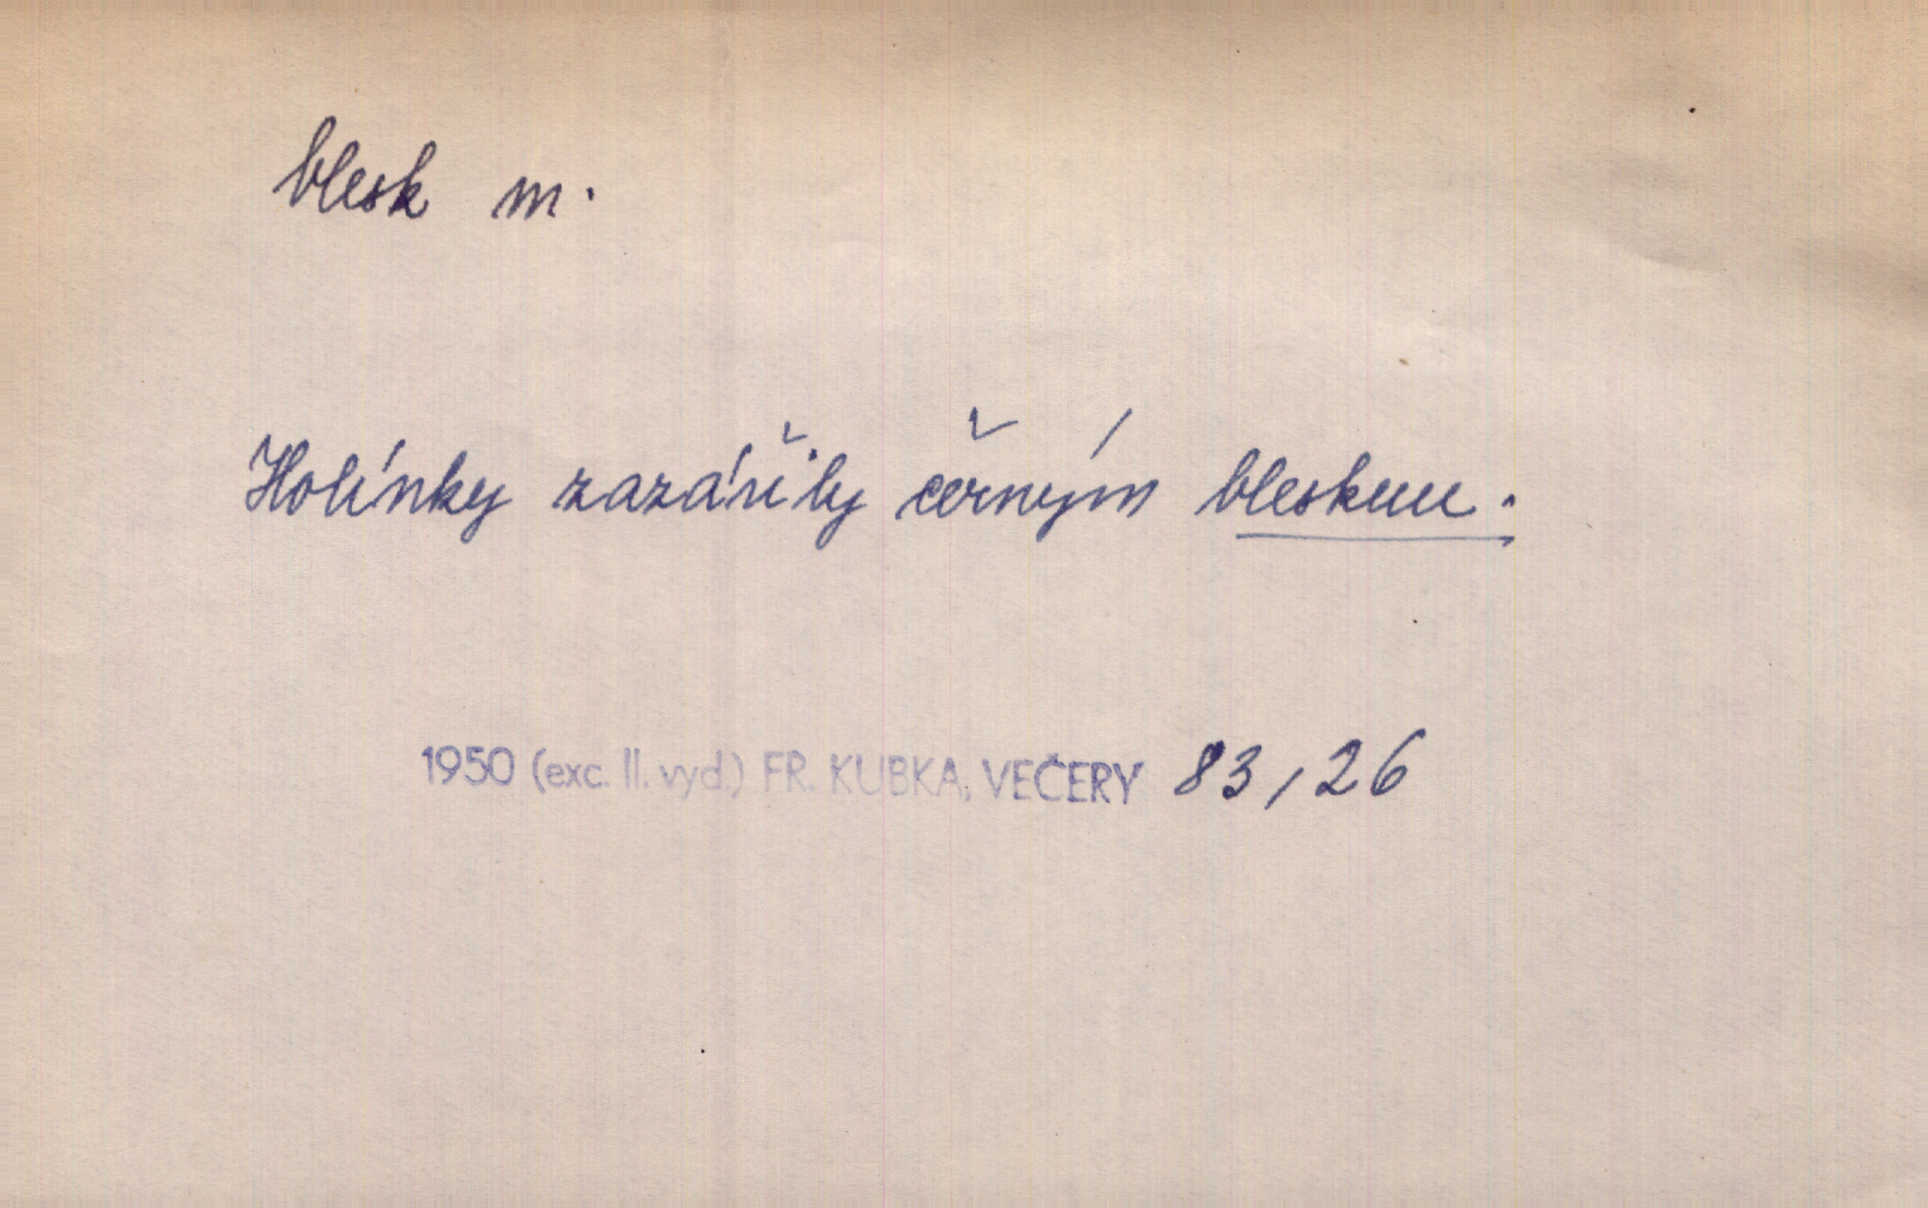 blesk m.
Holínky zazářily černým bleskem.
1950 (exc. II. vyd.) FR. KUBKA, VEČERY 83/26